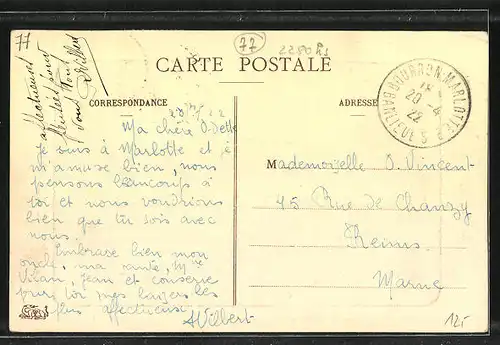 77
77
2280 Rs
CARTE POSTALE
CORRESPONDANCE
ADRESSE
BOURRON-MARLOTTE
20 -4
22
S.
affectueuses
pour
tous
Ma chère Odette
Je suis à Marlotte et je
m'amuse bien, nous
pensons beaucoup à
toi et nous voudrions
bien que tu sois avec
nous.
Embrasse bien mon
oncle, ma tante, Mme
Jean et conserve
pour toi mes baisers les
plus affectueux
AVilbert
Mademoiselle O. Vincent
45 Rue de Chanzy
Reims
Marne
12,-